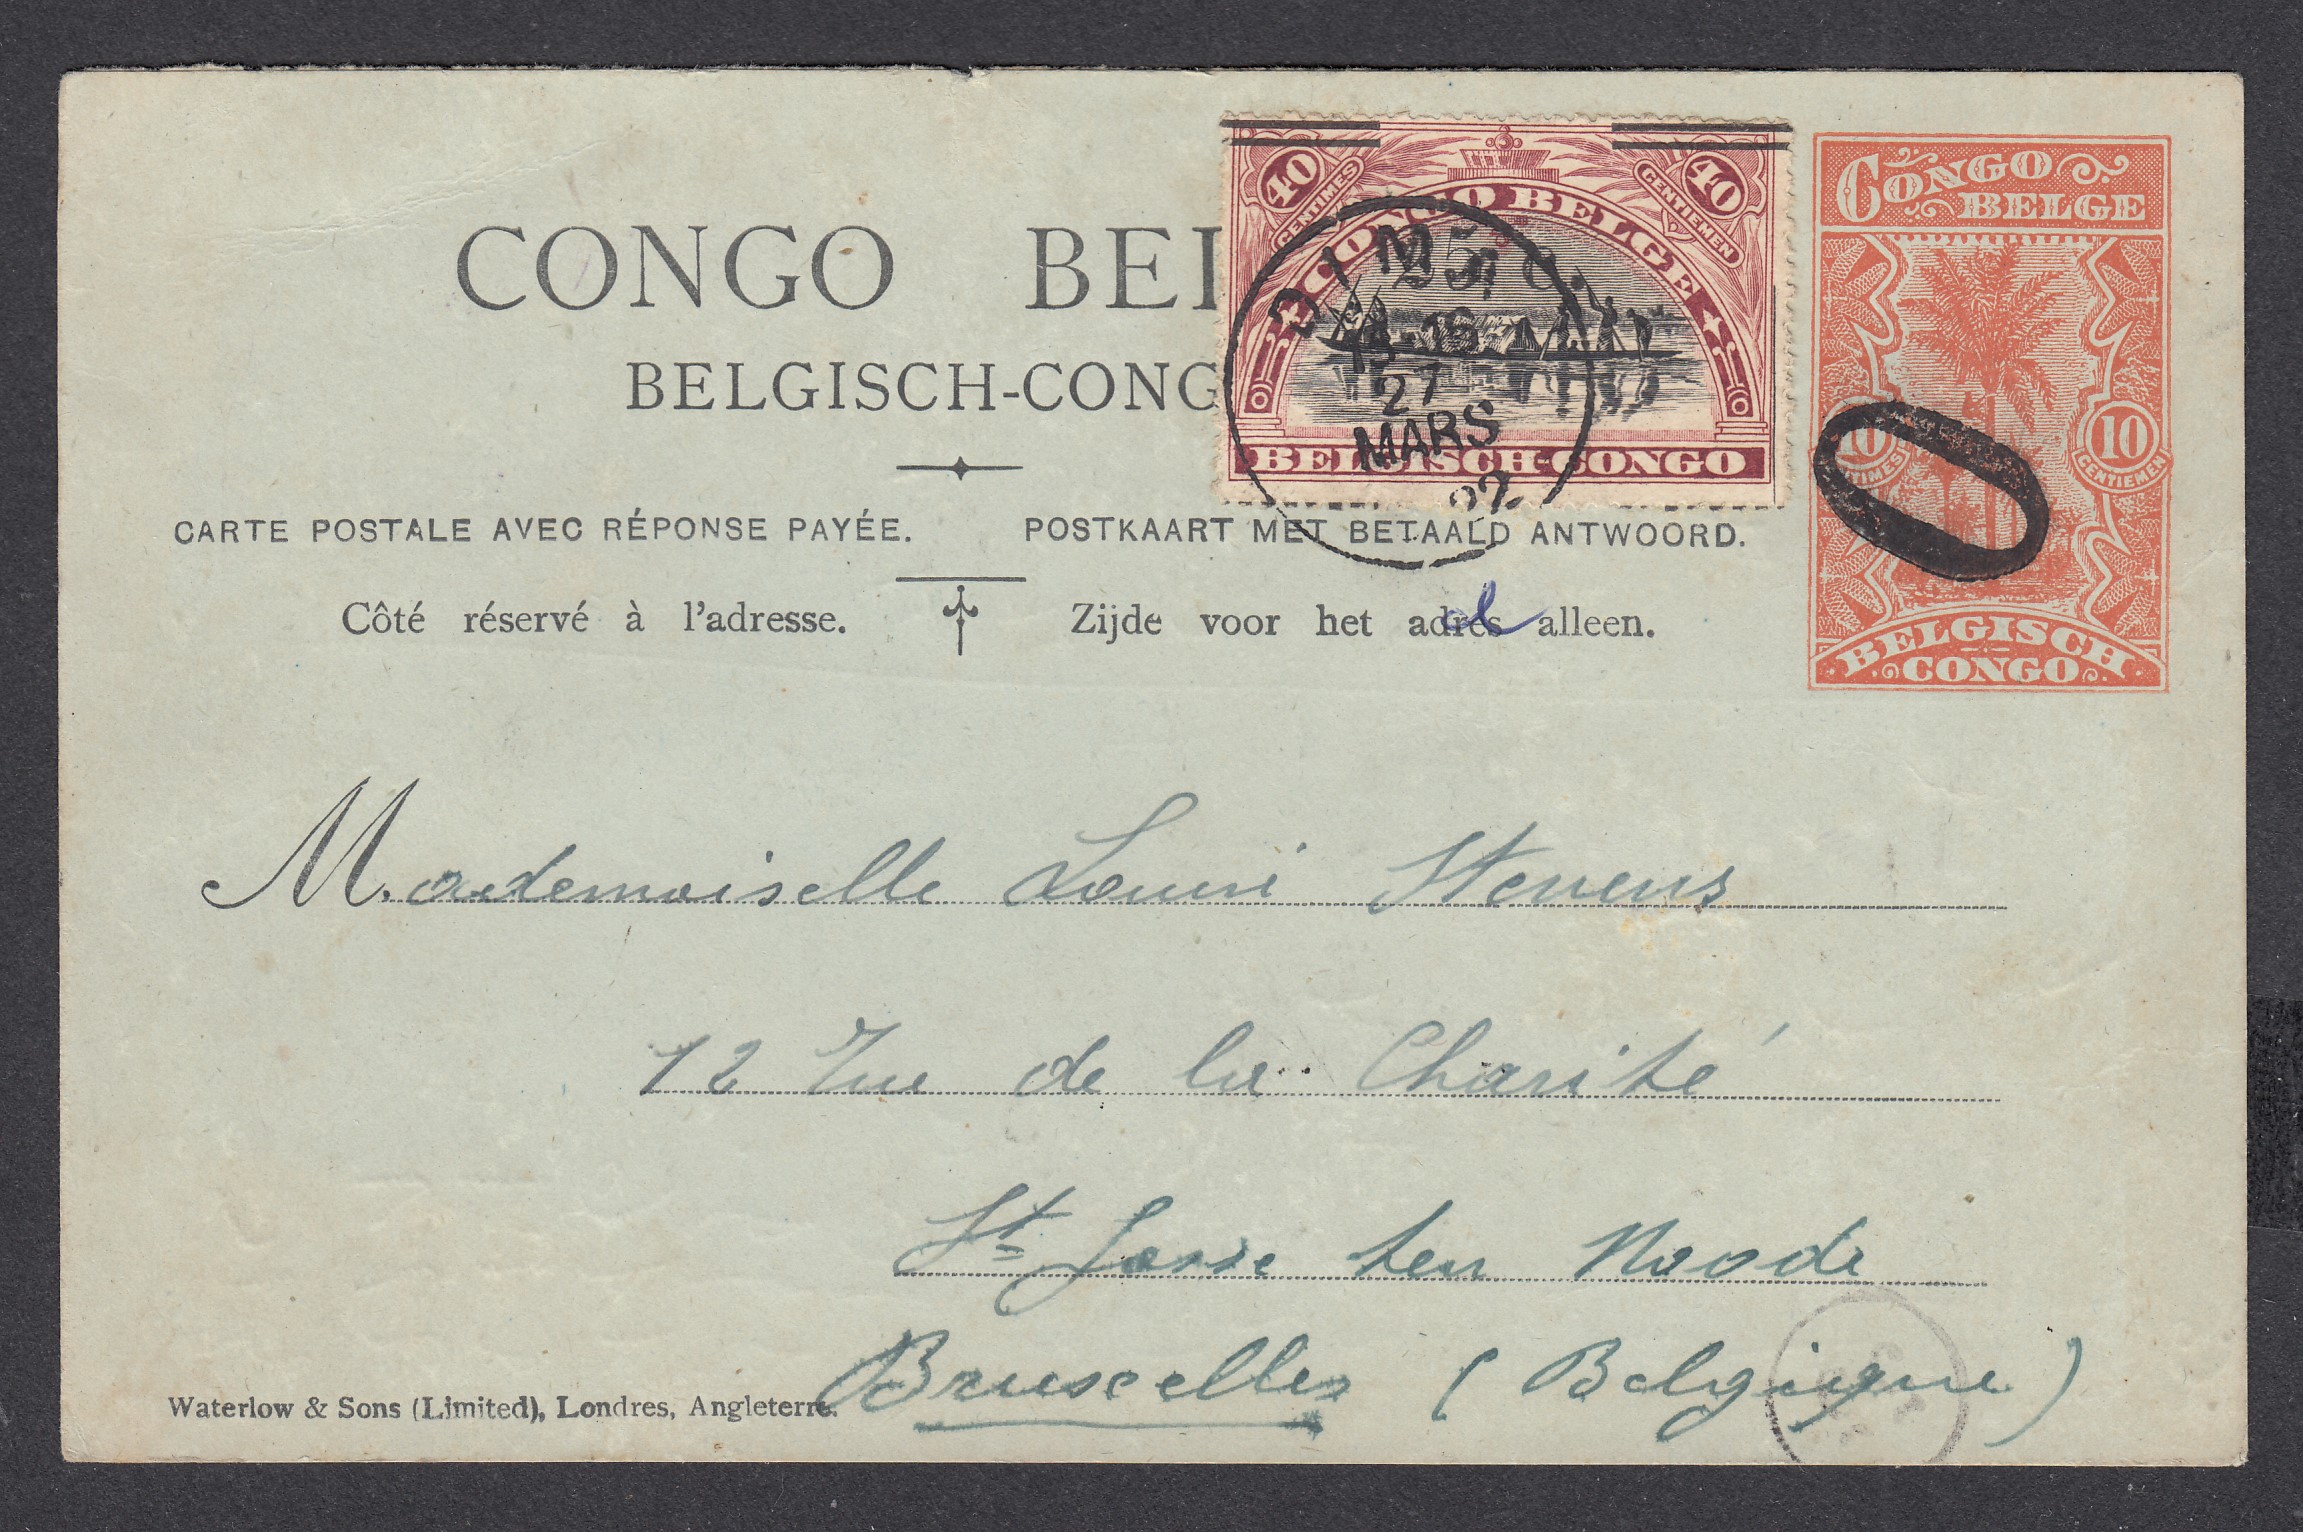 CONGO BEL
BELGISCH-CONG
CARTE POSTALE AVEC RÉPONSE PAYÉE. POSTKAART MET BETAALD ANTWOORD.
Côté réservé à l'adresse. Zijde voor het adres alleen.
40 CENTIMES
40 CENTIEMEN
CONGO BELGE
BELGISCH-CONGO
DIMA
27
MARS
22
CONGO
BELGE
10 CENTIMES
10 CENTIEMEN
BELGISCH
CONGO
M.ademoiselle Stevens
12 Rue de la Charité
St Josse ten Noode
Bruxelles (Belgique)
Waterlow & Sons (Limited), Londres, Angleterre.